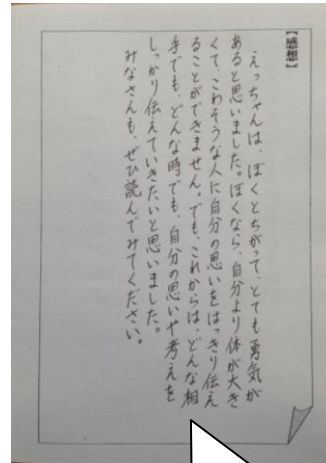 【感想】
えっちゃんは、ぼくとちがって、とても勇気が
あると思いました。ぼくなら、自分より体が大き
くて、こわそうな人に自分の思いをはっきり伝え
ることができません。でも、これからは、どんな相
手でも、どんな時でも、自分の思いや考えを
しっかり伝えていきたいと思いました。
みなさんも、ぜひ読んでみてください。